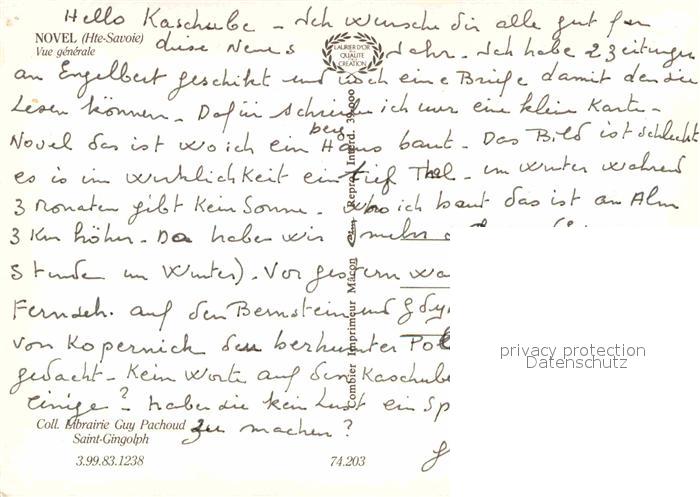 Hello Kaschube – Ich wunsche dir alle gut fur
NOVEL (Hte-Savoie)
Vue générale
diese Neues Jahr. Ich habe 2 Zeitungen
LAURIER D'OR
DE
QUALITÉ
CREATION
an Engelbert geschikt und noch eine Briefe damit den die
Lesen können – Dafür schreibe ich nur eine klein Karte –
Novel das ist wo ich ein Haus baut – Das Bild ist schlecht
berg
es is im wirklichkeit ein tief Thal – im winter während
3 Monaten gibt kein Sonne – Wo ich baut das ist an Alm
3 Km höher – Da haben wir mehr
Stunden im Winter). Vor gestern wa
Fernseh. auf den Bernstein und Gdy
von Kopernick den berhumter Pol
gedacht – Kein Worte auf den Kaschube
Einige? haben sie kein Lust ein Sp
zu machen?
Coll. Librairie Guy Pachoud
Saint-Gingolph
3.99.83.1238
74.203
Combier Imprimeur Mâcon
Repro. Interd. 39.000
privacy protection
Datenschutz